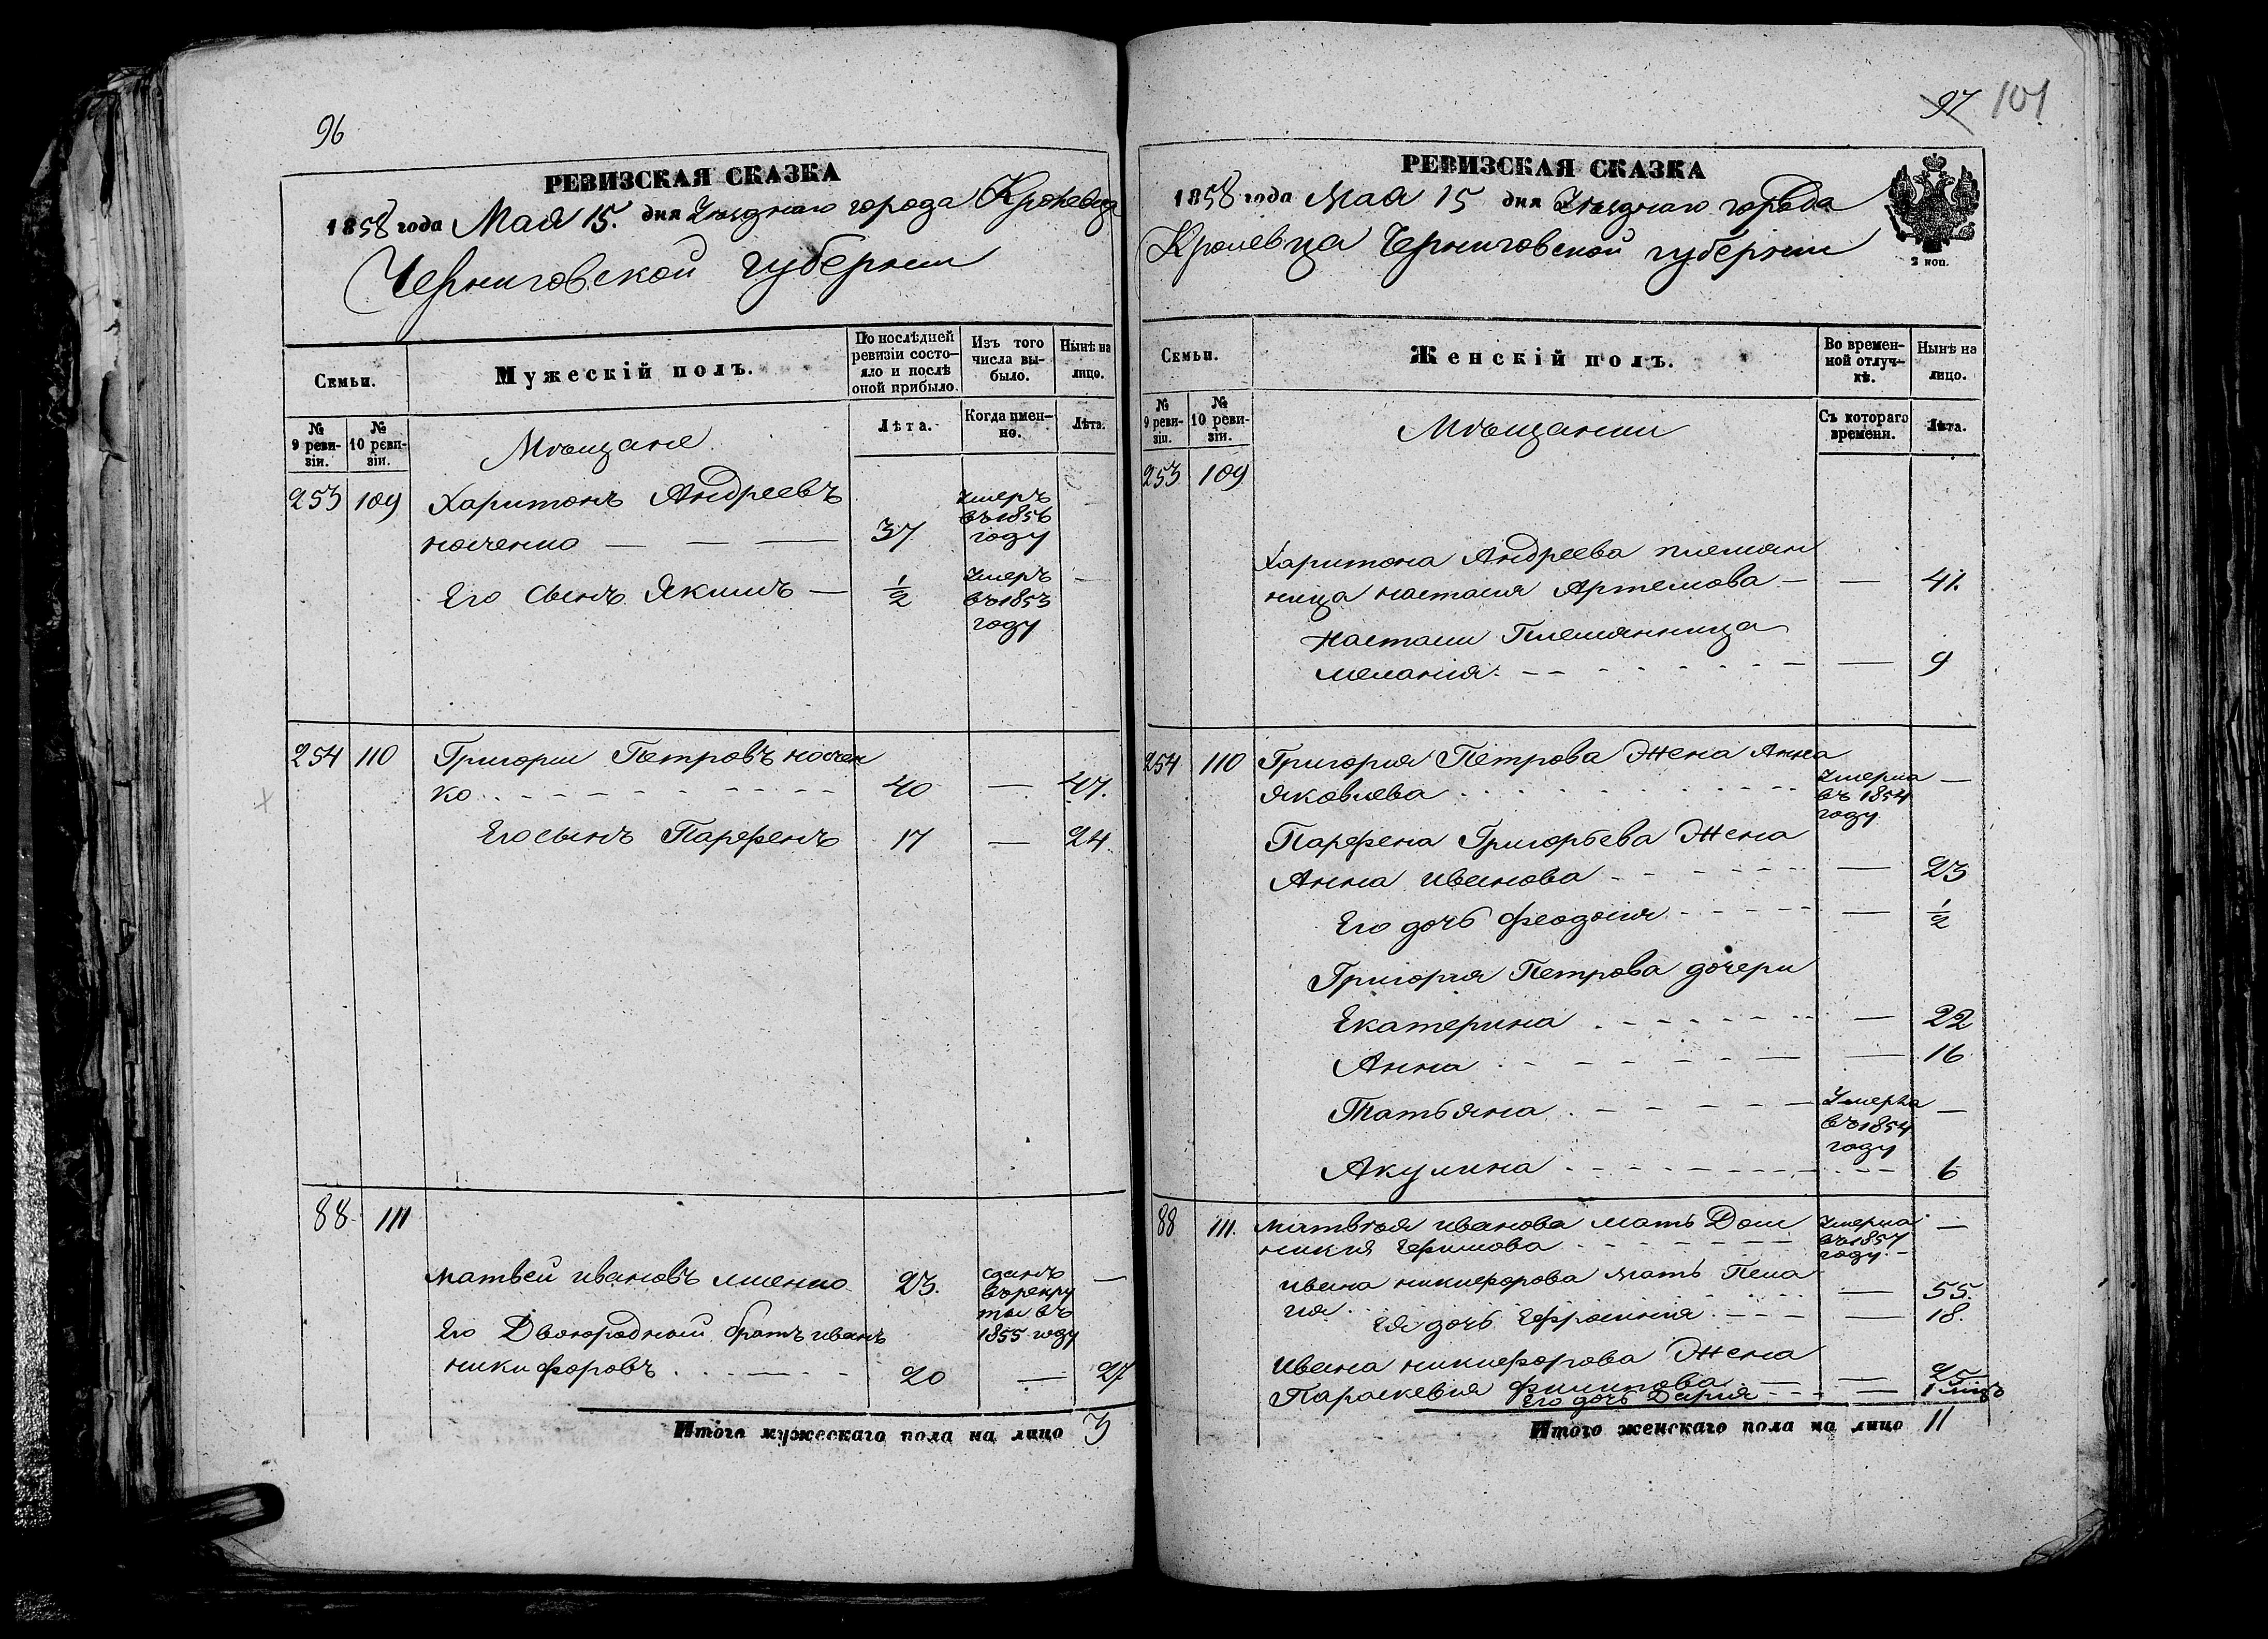 96
РЕВИЗСКАЯ СКАЗКА
1858 года Мая 15. дня Уѣзднаго города Кролевца
Черниговской губернии
Семьи.
Мужескій полъ.
По послѣдней ревизіи состояло и послѣ оной прибыло.
Изъ того числа выбыло.
Нынѣ на лицо.
№ 9 ревизіи.
№ 10 ревизіи.
Лѣта.
Когда именно.
Лѣта.
Мѣщане
253 109 Харитонъ Андреевъ
Умеръ въ 1856 году
37
Его сынъ Якимъ — ½ Умеръ въ 1853 году —
254 110 Григории Петровъ
ко 40 — 47.
Его сынъ Парфенъ 17 — 24
88 111
Матвей Ивановъ 23. сданъ въ рекруты въ 1855 году —
Его Двоюродный братъ Иванъ
Никифоровъ 20 — 27
Итого мужескаго пола на лицо 3
97 101
РЕВИЗСКАЯ СКАЗКА
1858 года Мая 15 дня Уѣзднаго города
Кролевца Черниговской губернии
2 коп.
Семьи.
Женскій полъ.
Во временной отлучкѣ.
Нынѣ на лицо.
№ 9 ревизіи.
№ 10 ревизіи.
Съ котораго времени.
Лѣта.
Мѣщанки
253 109
Харитона Андреева племян
ница Настасия Артемова — — 41.
Настасии Племянница
Мелания — 9
254 110 Григория Петрова Жена Анна
Яковлева Умерла въ 1854 году —
Парфена Григорьева Жена
Анна Иванова — 23
Его дочь Феодосия — ½
Григория Петрова дочери
Екатерина — 22
Анна — 16
Татьяна Умерла въ 1854 году —
Акулина — 6
88 111. Матвея Иванова мать Дом
никия Ефимова Умерла въ 1857 году —
Ивана Никифорова Мать Пела
гия — 55.
Ея дочь Ефросиния — 18.
Ивана Никифорова Жена
Параскевия Филипова — 25
Его дочь Дария — 1
Итого женскаго пола на лицо 11